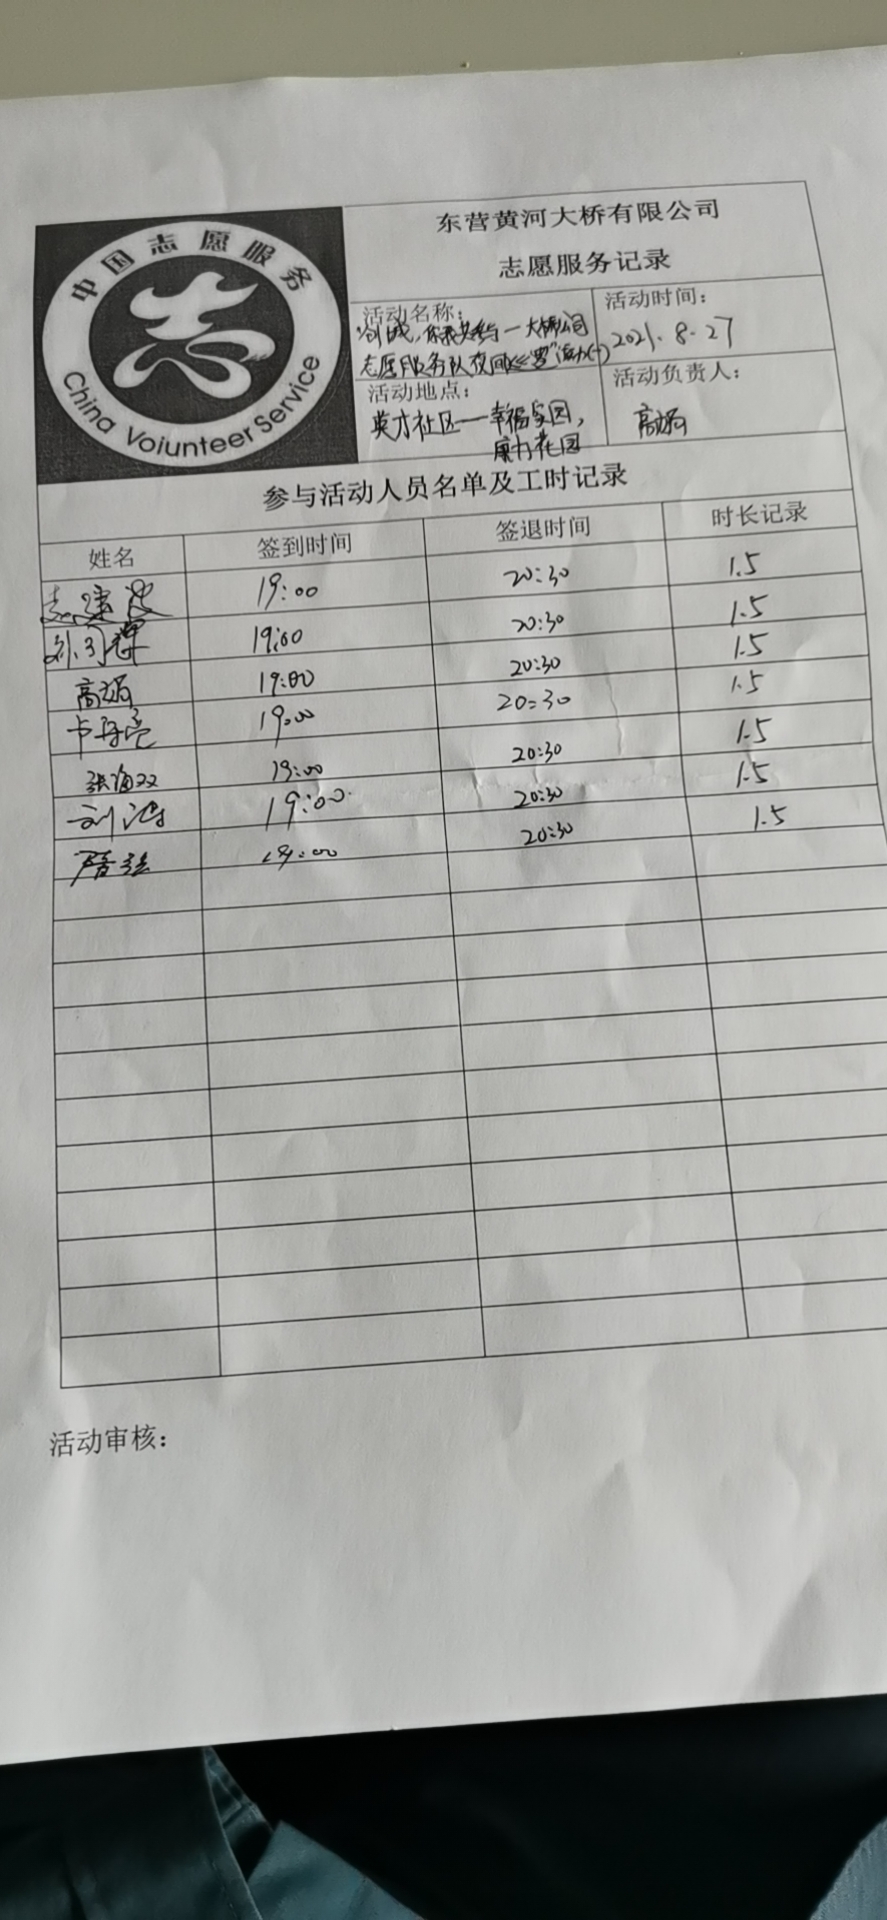 中国志愿服务
China Voiunteer Service
东营黄河大桥有限公司
志愿服务记录
活动名称：
创城，你我共参与一大桥公司
志愿服务队夜间巡逻"活动(一)
活动时间：
2021.8.27
活动地点：
英才社区——幸福家园，
康力花园
活动负责人：
高娟
参与活动人员名单及工时记录
姓名 签到时间 签退时间 时长记录
19:00 20:30 1.5
19:00 20:30 1.5
高娟 19:00 20:30 1.5
19:00 20:30 1.5
张海双 19:00 20:30 1.5
刘涛 19:00 20:30 1.5
19:00 20:30 1.5
活动审核：